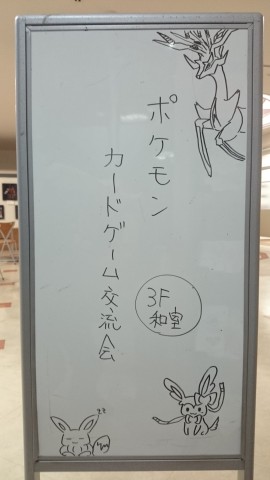 ポケモン
カードゲーム交流会
3F
和室